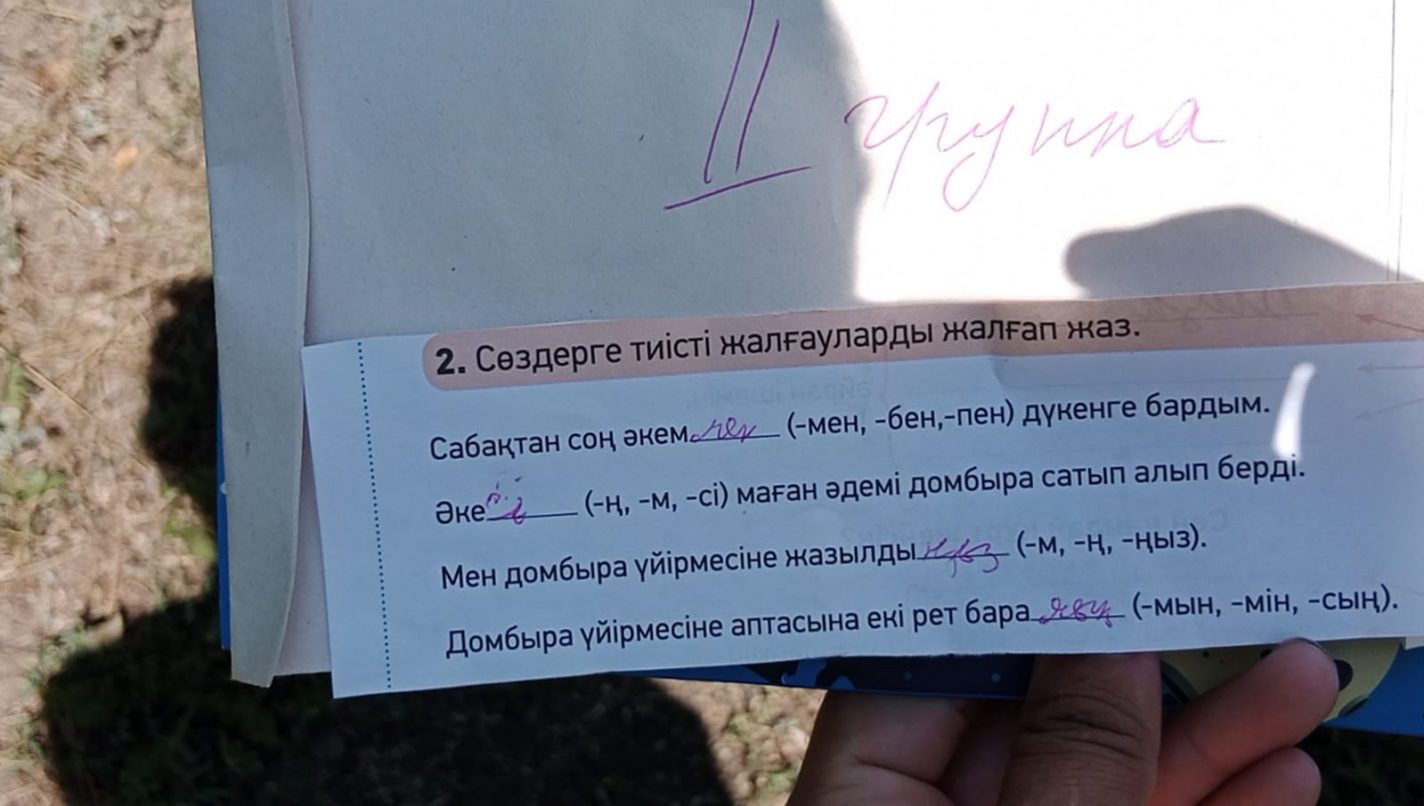 II группа
2. Сөздерге тиісті жалғауларды жалғап жаз.
Сабақтан соң әкем мен (-мен, -бен,-пен) дүкенге бардым.
Әке (-ң, -м, -сі) маған әдемі домбыра сатып алып берді.
Мен домбыра үйірмесіне жазылды ңыз (-м, -ң, -ңыз).
Домбыра үйірмесіне аптасына екі рет бара (-мын, -мін, -сың).